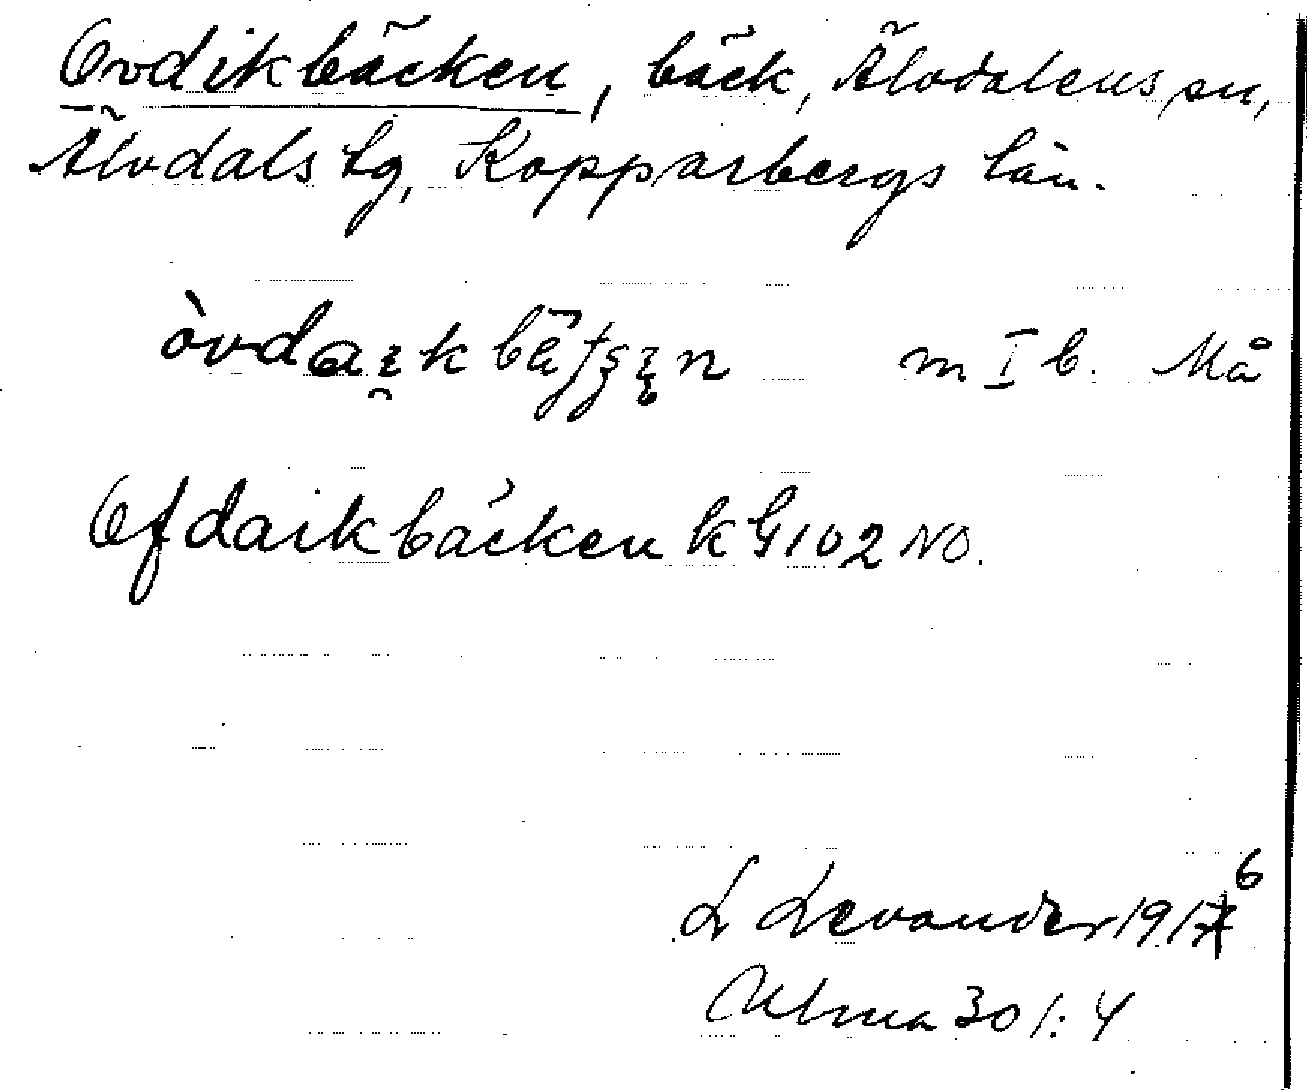 Ovdikbäcken, bäck, Älvdalens sn,
Älvdals tg, Kopparbergs län.
m I b. Må
Ofdaikbäcken k G 102 NO.
L Levander 1917 6
Ulma 301:4